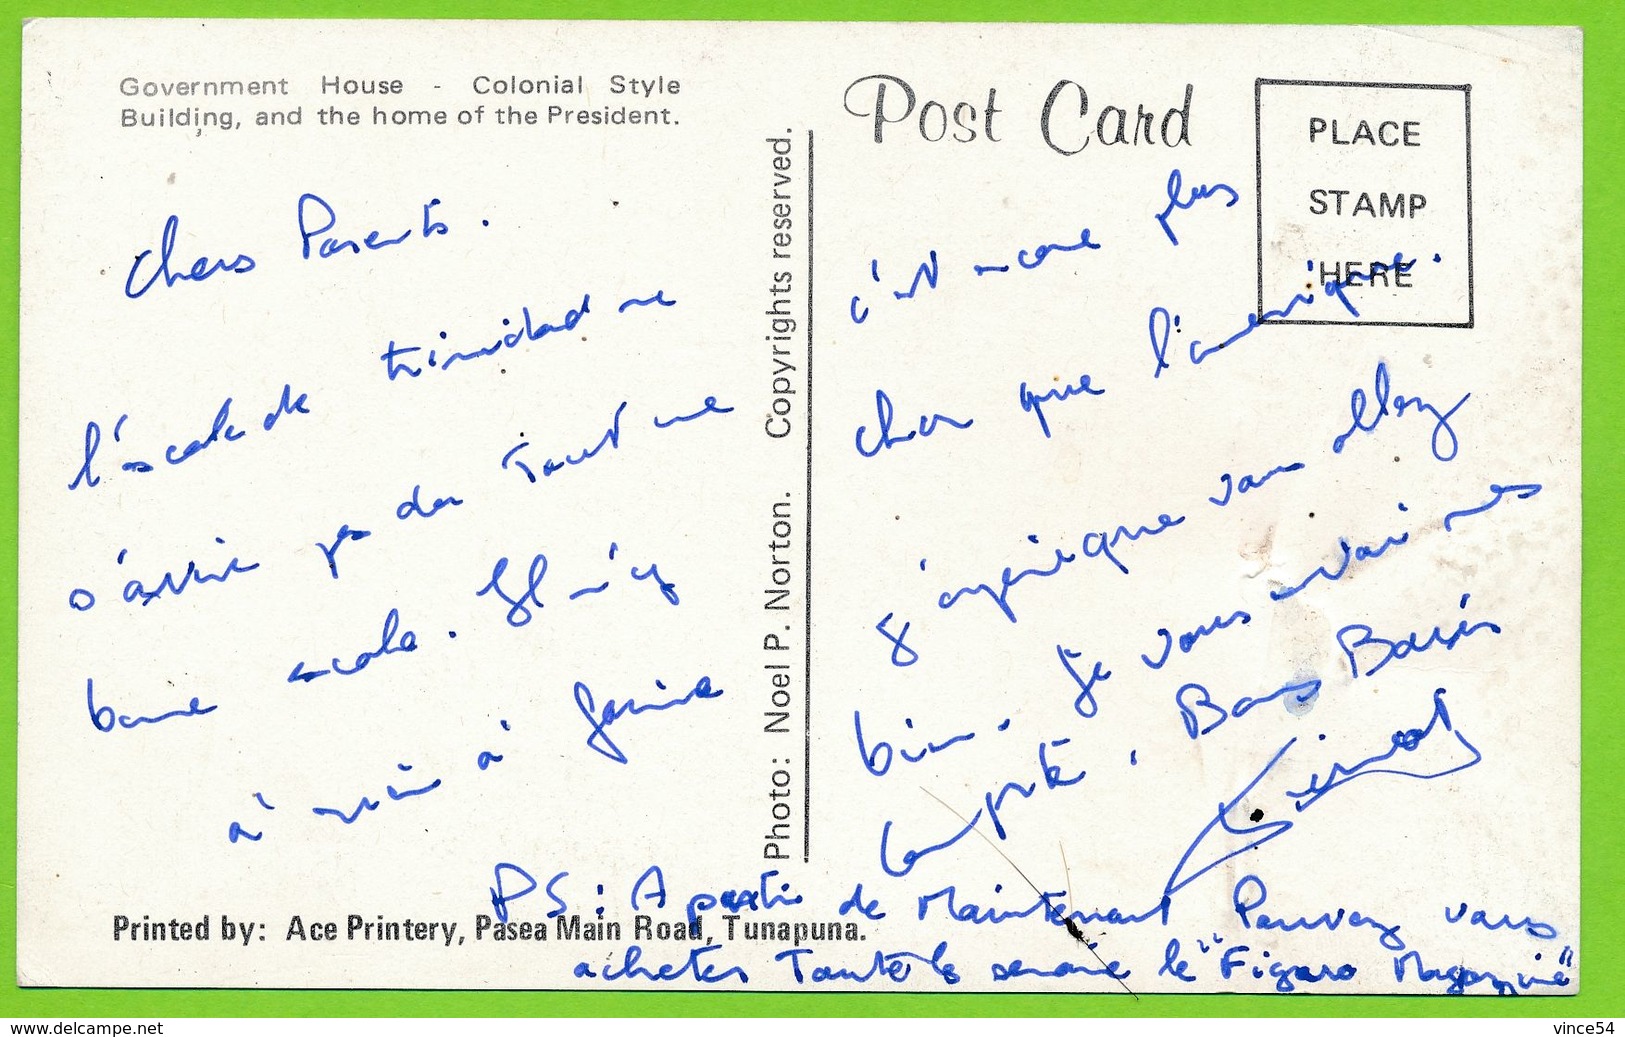 Government House - Colonial Style
Building, and the home of the President.
Post Card
PLACE
STAMP
HERE
Photo: Noel P. Norton. Copyrights reserved.
Chers Parents.
l'escale de trinidad ne
s'avère pas du Tout une
bonne escale. Il n'y
à rien à faire
c'est encore plus
cher que l'amerique.
J'espère que vous allez
bien. Je vous
compte. Bons Baisers
PS: A partir de Maintenant Pouvez vous
acheter Toute les semaine le "Figaro Magazine"
Printed by: Ace Printery, Pasea Main Road, Tunapuna.
delcampe.net
vince54